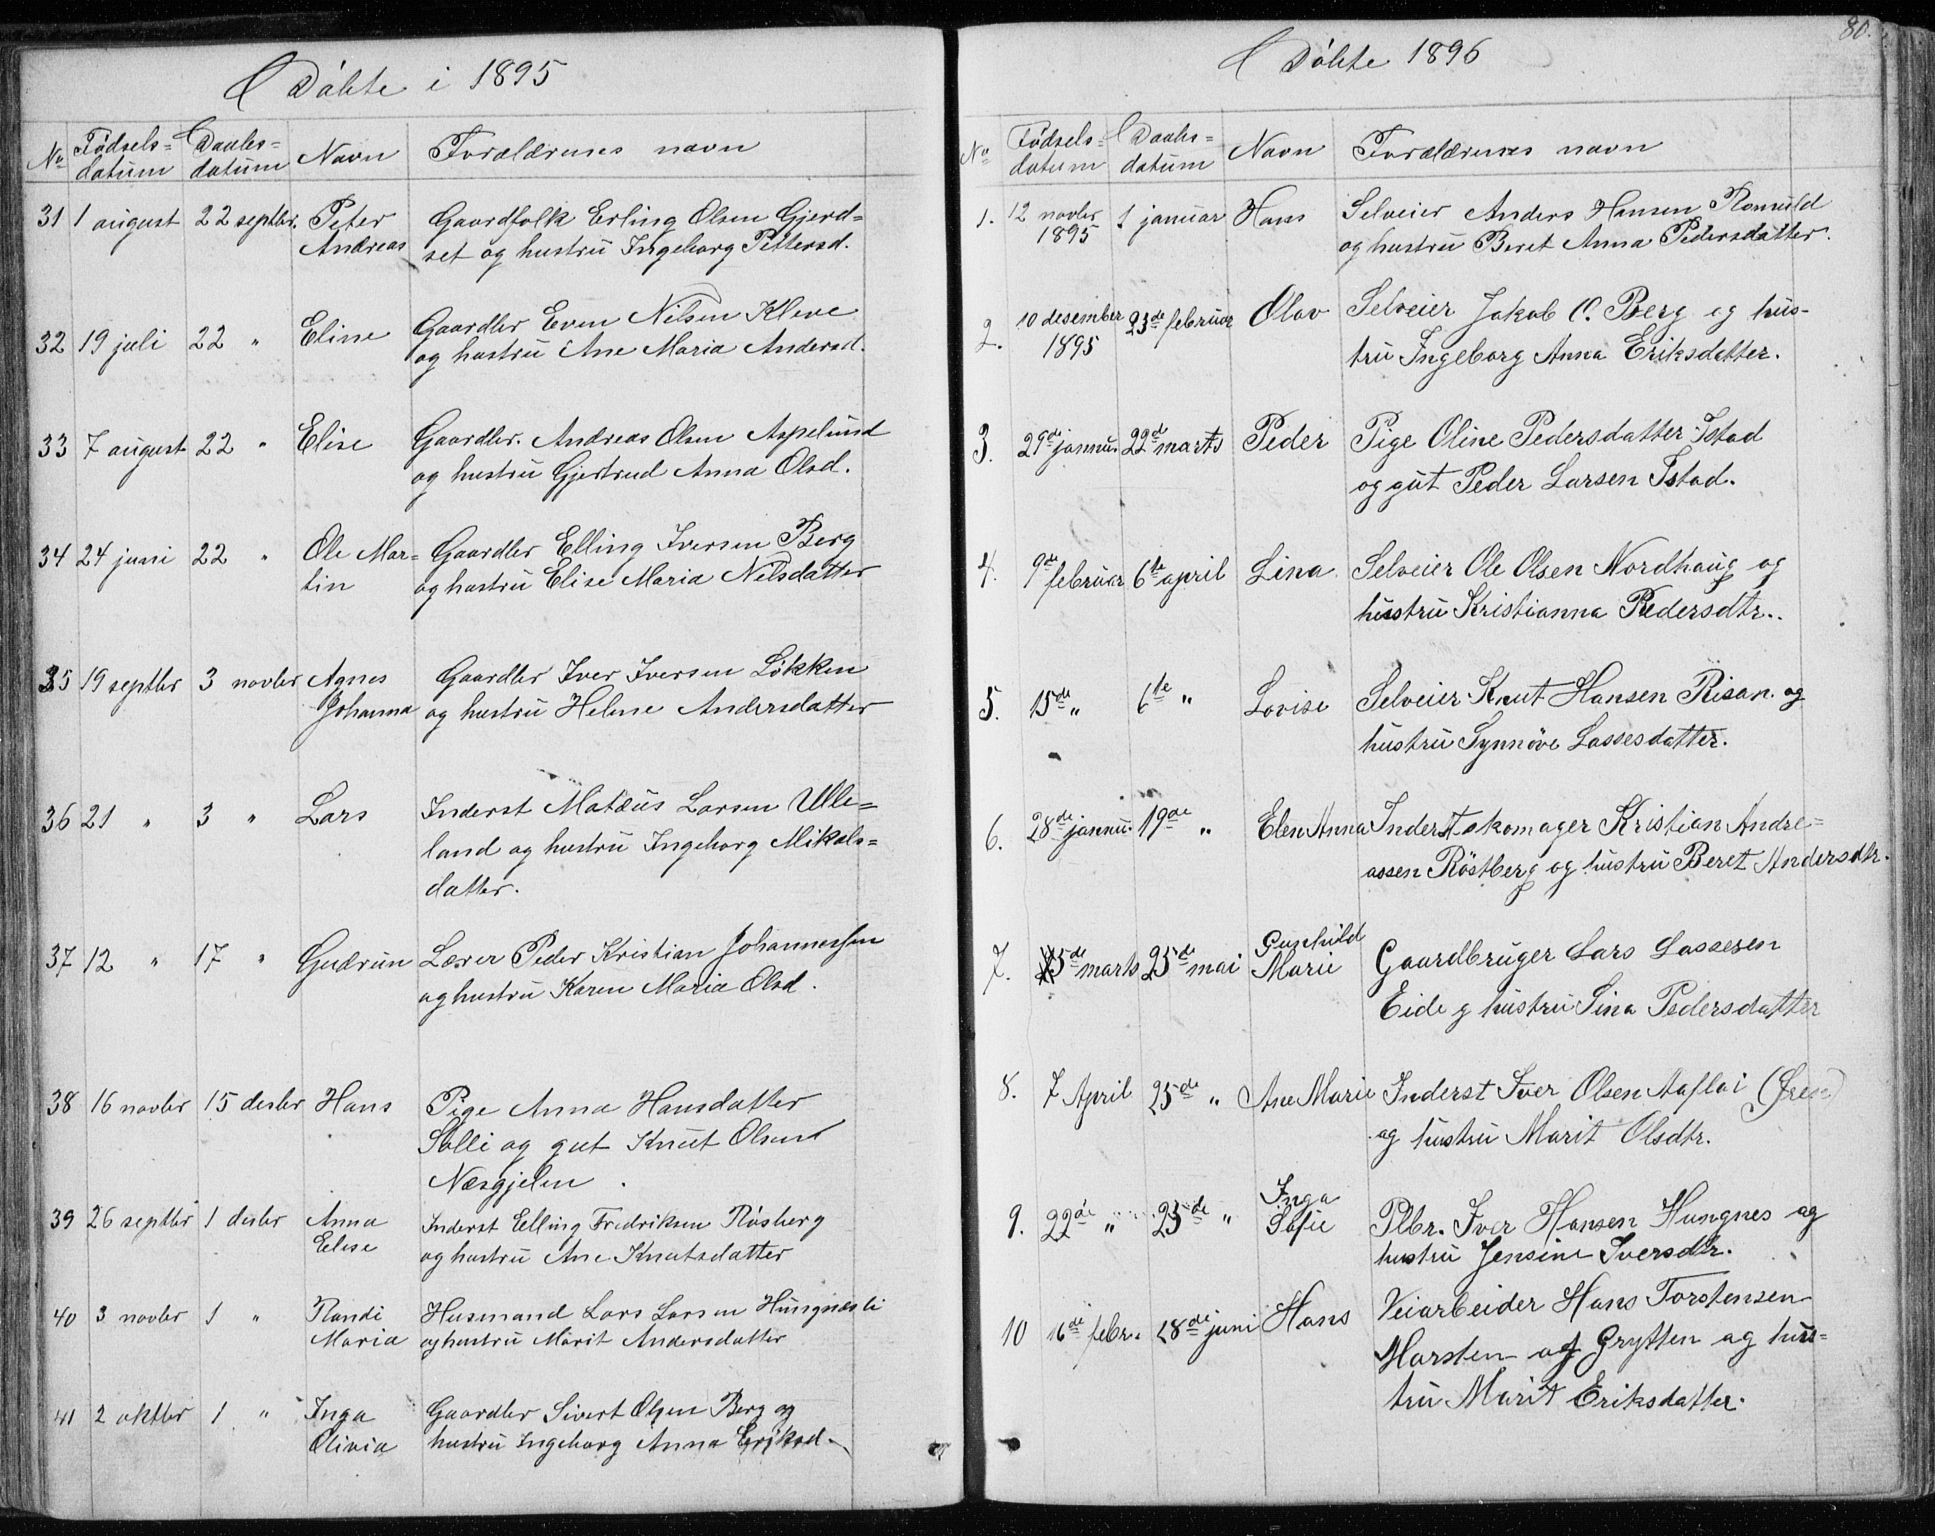 Döbte i 1895
No Födsels= datum Daabs= datum Navn Forældrenes navn
31 1 august 22 septbr. Peter Gaardfolk Erling Olsen Gjerd=
Andreas set og hustru Ingeborg Pettersd.
32 19 juli 22 " Eline Gaardbr Even Nilsen Kleve
og hustru Ane Maria Andersd.
33 7 august 22 " Elise Gaardbr. Andreas Olsen Aspelund
og hustru Gjertrud Anna Olsd.
34 24 juni 22 " Ole Mar= Gaardbr Elling Iversen Berg
tin og hustru Elise Maria Nilsdatter
35 19 septbr 3 novbr Agnes Gaardbr Iver Iversen Lökken
Johanna og hustru Helene Andersdatter
36 21 " 3 " Lars Inderst Matæus Larsen Ulle=
land og hustru Ingeborg Mikals=
datter.
37 12 " 17 " Gudrun Lærer Peder Kristian Johannessen
og hustru Karen Maria Olsd.
38 16 novbr 15 desbr Hans Pige Anna Hansdatter
Solli og gut Knut Olsen
Næsgjelen.
39 26 septbr 1 desbr Anna Inderst Elling Fredriksen Rösberg
Elise og hustru Ane Knutsdatter
40 3 novbr 1 " Randi Husmand Lars Larsen Hungnesli
Maria og hustru Marit Andersdatter
41 2 oktbr 1 " Inga Gaardbr Sivert Olsen Berg og
Olivia hustru Ingeborg Anna Eriksd.
80.
Döbte 1896
No Födsels= datum Daabs= datum Navn Forældrenes navn
1. 12 novbr 1 januar Hans Selveier Anders Hansen Romuld
1895 og hustru Beret Anna Pedersdatter.
2. 10 desember 23de februar Olav Selveier Jakob O. Berg og hus-
1895 tru Ingeborg Anna Eriksdatter.
3. 29de jannu. 22de marts Peder Pige Oline Pedersdatter Istad
og gut Peder Larsen Istad.
4. 9de februar 6te april Lina Selveier Ole Olsen Nordhaug og
hustru Kristianna Pedersdtr..
5. 15de " 6te " Lovise Selveier Knut Hansen Risan. og
hustru Synnöve Lassesdatter.
6. 28de jannu. 19de " Elen Anna Inderst skomager Kristian Andre=
assen Röstberg og hustru Beret Andersdtr.
7. 5de marts 25de mai Gunhild Gaardbruger Lars Lassesen
Marie Eide g hustru Sina Pedersdatter
8. 7 April 25de " Ane Marie Inderst Iver Olsen Aaflai (Øren)
ag hustru Marit Olsdtr.
9. 22de " 25de " Inga Plbr. Iver Hansen Hungnes ag
Sofie hustru Jensine Iversdtr.
10 16de febr. 28de juni Hans Veiarbeider Hans Torstensen
Marsten af Grytten ag hus=
tru Marit Eriksdatter.